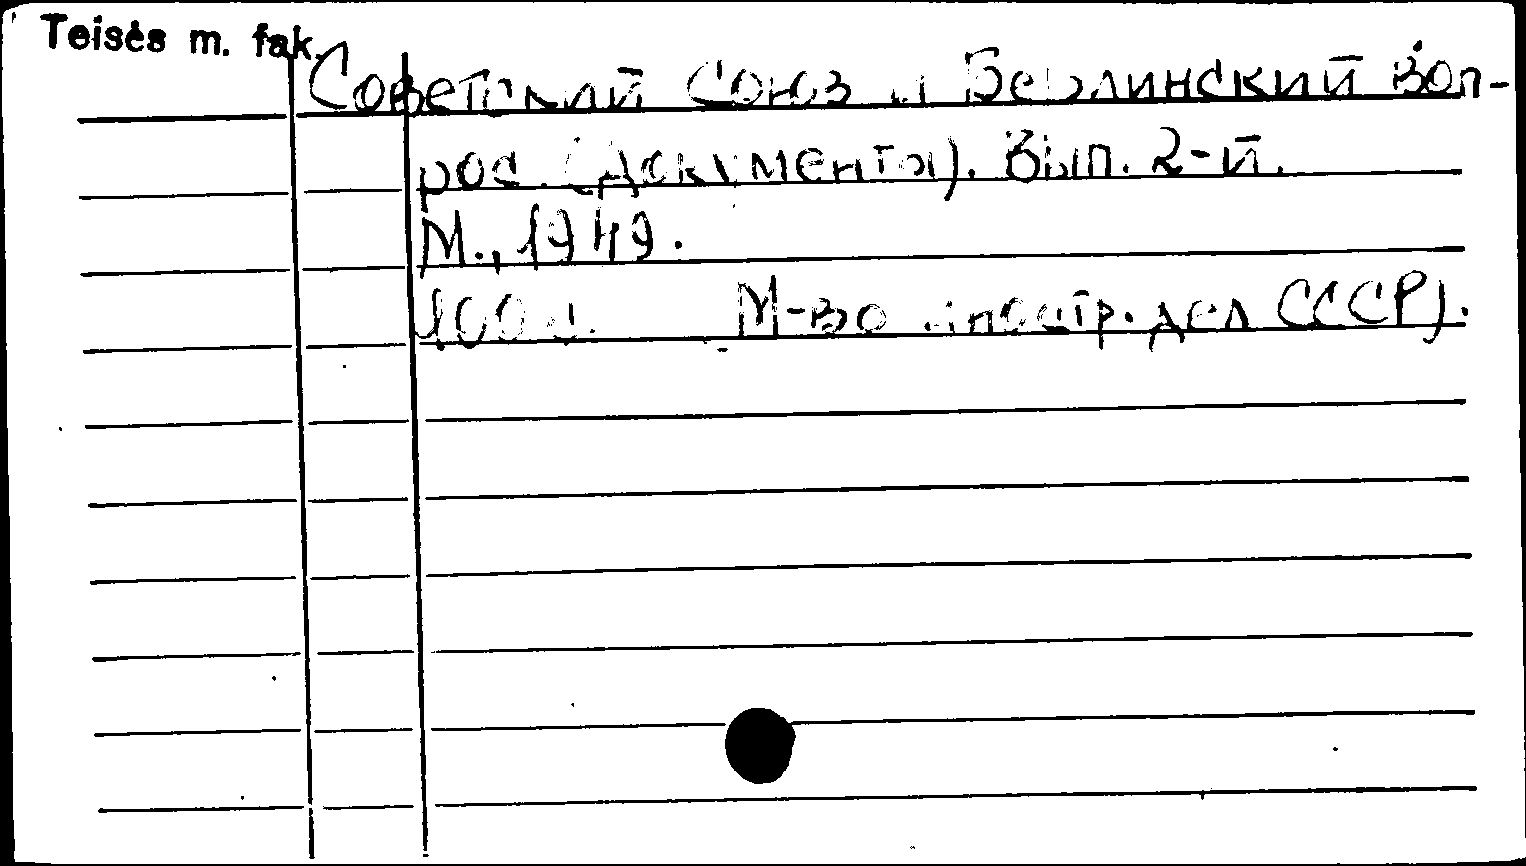 Teisės m. fak.
Советский Союз и Берлинский воп-
рос. (Документы). Вып. 2-й.
М., 1949.
100 с. М-во иностр. дел СССР).